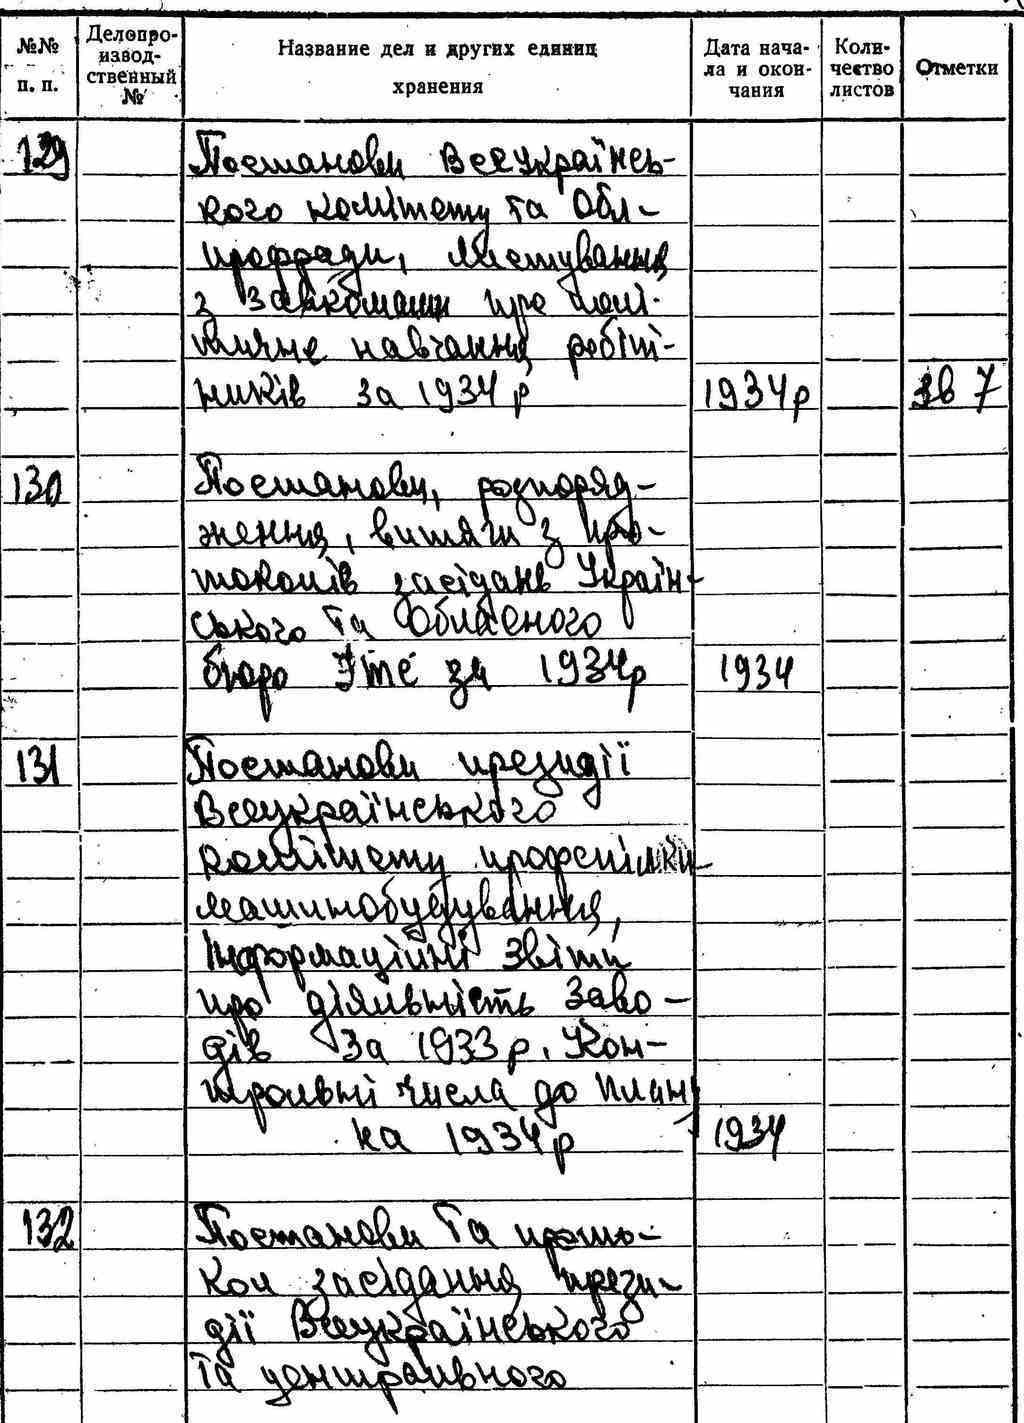 №№ п. п.
Делопро-
извод-
ственный
№
Название дел и других единиц
хранения
Дата нача-
ла и окон-
чания
Коли-
чество
листов
Отметки
129 Постанови Всеукраїнсь-
кого комітету та Обл-
профради, листування
з завкомами про полі-
тичне навчання робіт-
ників за 1934 р 1934р 7
130 Постанови, розпоряд-
ження, витяги з про-
токолів засідань Україн-
ського та Обласного
бюро ІТС за 1934р 1934
131 Постанови президії
Всеукраїнського
комітету профспілки
машинобудування,
інформаційні звіти
про діяльність заво-
дів за 1933 р. Кон-
трольні числа до плану
на 1934 р 1934
132 Постанови та прото-
кол засідання прези-
дії Всеукраїнського
та центрального